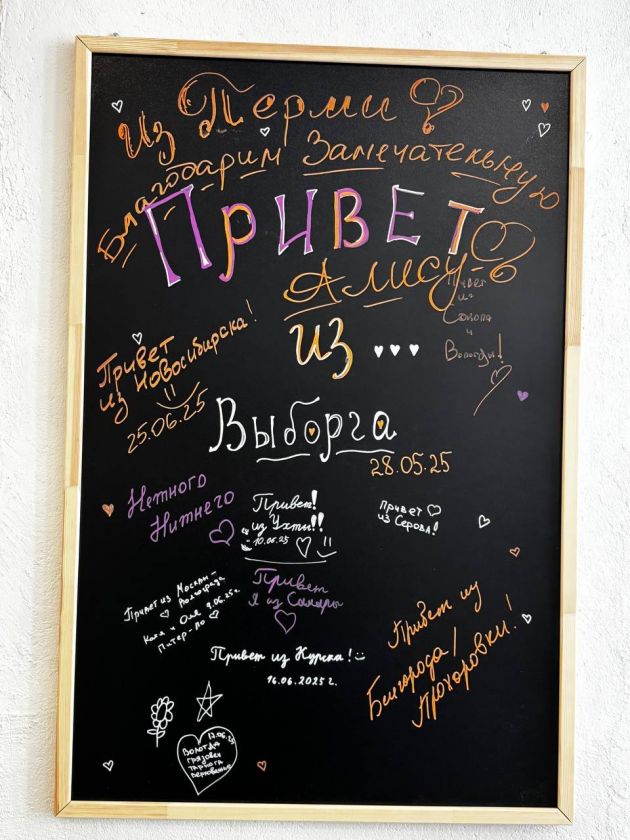 Из Перми
Благодарим Замечательную
ПРИВЕТ
Алису
Привет
из
Сокола
и
Вологды!
из ...
Привет
из Новосибирска!
25.06.25
Выборга
28.05.25
Немного
Нижнего
Привет!
из Ухты!!
10.06.25
Привет
из Серова!
Привет из Москвы-
Волгограда
Катя и Оля 9.06.25г.
Питер-
Привет
Я из Самары
Привет из Курска!
16.06.2025 г.
Привет из
Белгорода/
Прохоровки!
17.06.25
Вологда
Грязовец
Тарнога
Верховажье